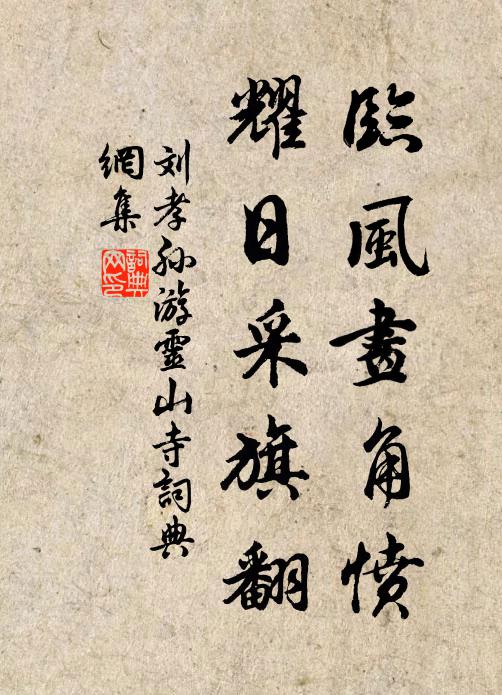 臨風畫角憤
耀日采旗翻
刘孝孙游靈山寺詞典
網集
詞典
网印